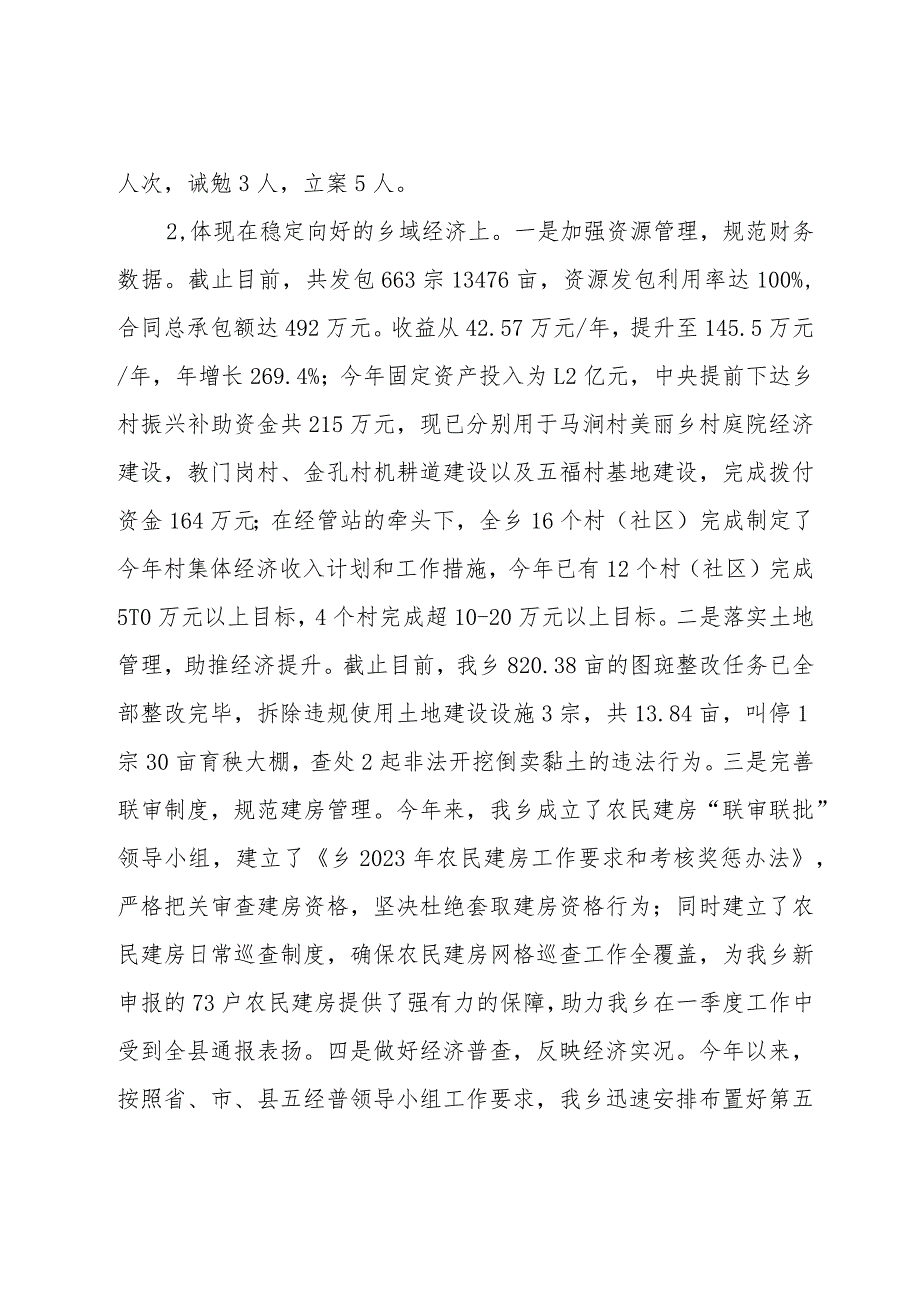 人次，诫勉 3 人，立案 5 人。
2,体现在稳定向好的乡域经济上。一是加强资源管理，规范财务
数据。截止目前，共发包 663 宗 13476 亩，资源发包利用率达 100%,
合同总承包额达 492 万元。收益从 42.57 万元/年，提升至 145.5 万元
/年，年增长 269.4%；今年固定资产投入为 L2 亿元，中央提前下达乡
村振兴补助资金共 215 万元，现已分别用于马涧村美丽乡村庭院经济
建设，教门岗村、金孔村机耕道建设以及五福村基地建设，完成拨付
资金 164 万元；在经管站的牵头下，全乡 16 个村（社区）完成制定了
今年村集体经济收入计划和工作措施，今年已有 12 个村（社区）完成
5T0 万元以上目标，4 个村完成超 10-20 万元以上目标。二是落实土地
管理，助推经济提升。截止目前，我乡 820.38 亩的图斑整改任务已全
部整改完毕，拆除违规使用土地建设设施 3 宗，共 13.84 亩，叫停 1
宗 30 亩育秧大棚，查处 2 起非法开挖倒卖黏土的违法行为。三是完善
联审制度，规范建房管理。今年来，我乡成立了农民建房“联审联批”
领导小组，建立了《乡 2023 年农民建房工作要求和考核奖惩办法》，
严格把关审查建房资格，坚决杜绝套取建房资格行为；同时建立了农
民建房日常巡查制度，确保农民建房网格巡查工作全覆盖，为我乡新
申报的 73 户农民建房提供了强有力的保障，助力我乡在一季度工作中
受到全县通报表扬。四是做好经济普查，反映经济实况。今年以来，
按照省、市、县五经普领导小组工作要求，我乡迅速安排布置好第五